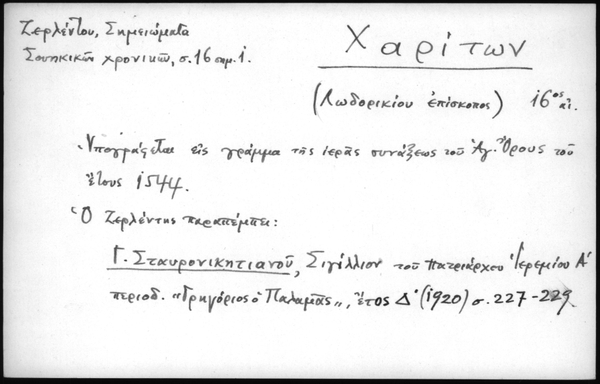 Ζερλέντου, Σημειώματα
χρονικῶν, σ. 16 σημ. 1.
Χαρίτων
(Λωδορικίου ἐπίσκοπος) 16ος αἰ.
Ὑπογράφεται εἰς γράμμα τῆς ἱερᾶς συνάξεως τοῦ Ἁγ. Ὄρους τοῦ
ἔτους 1544.
Ὁ Ζερλέντης παραπέμπει:
Γ. Σταυρονικητιανοῦ, Σιγίλλιον τοῦ πατριάρχου Ἱερεμίου Α'
περιοδ. "Γρηγόριος ὁ Παλαμᾶς", ἔτος Δ' (1920) σ. 227-229.